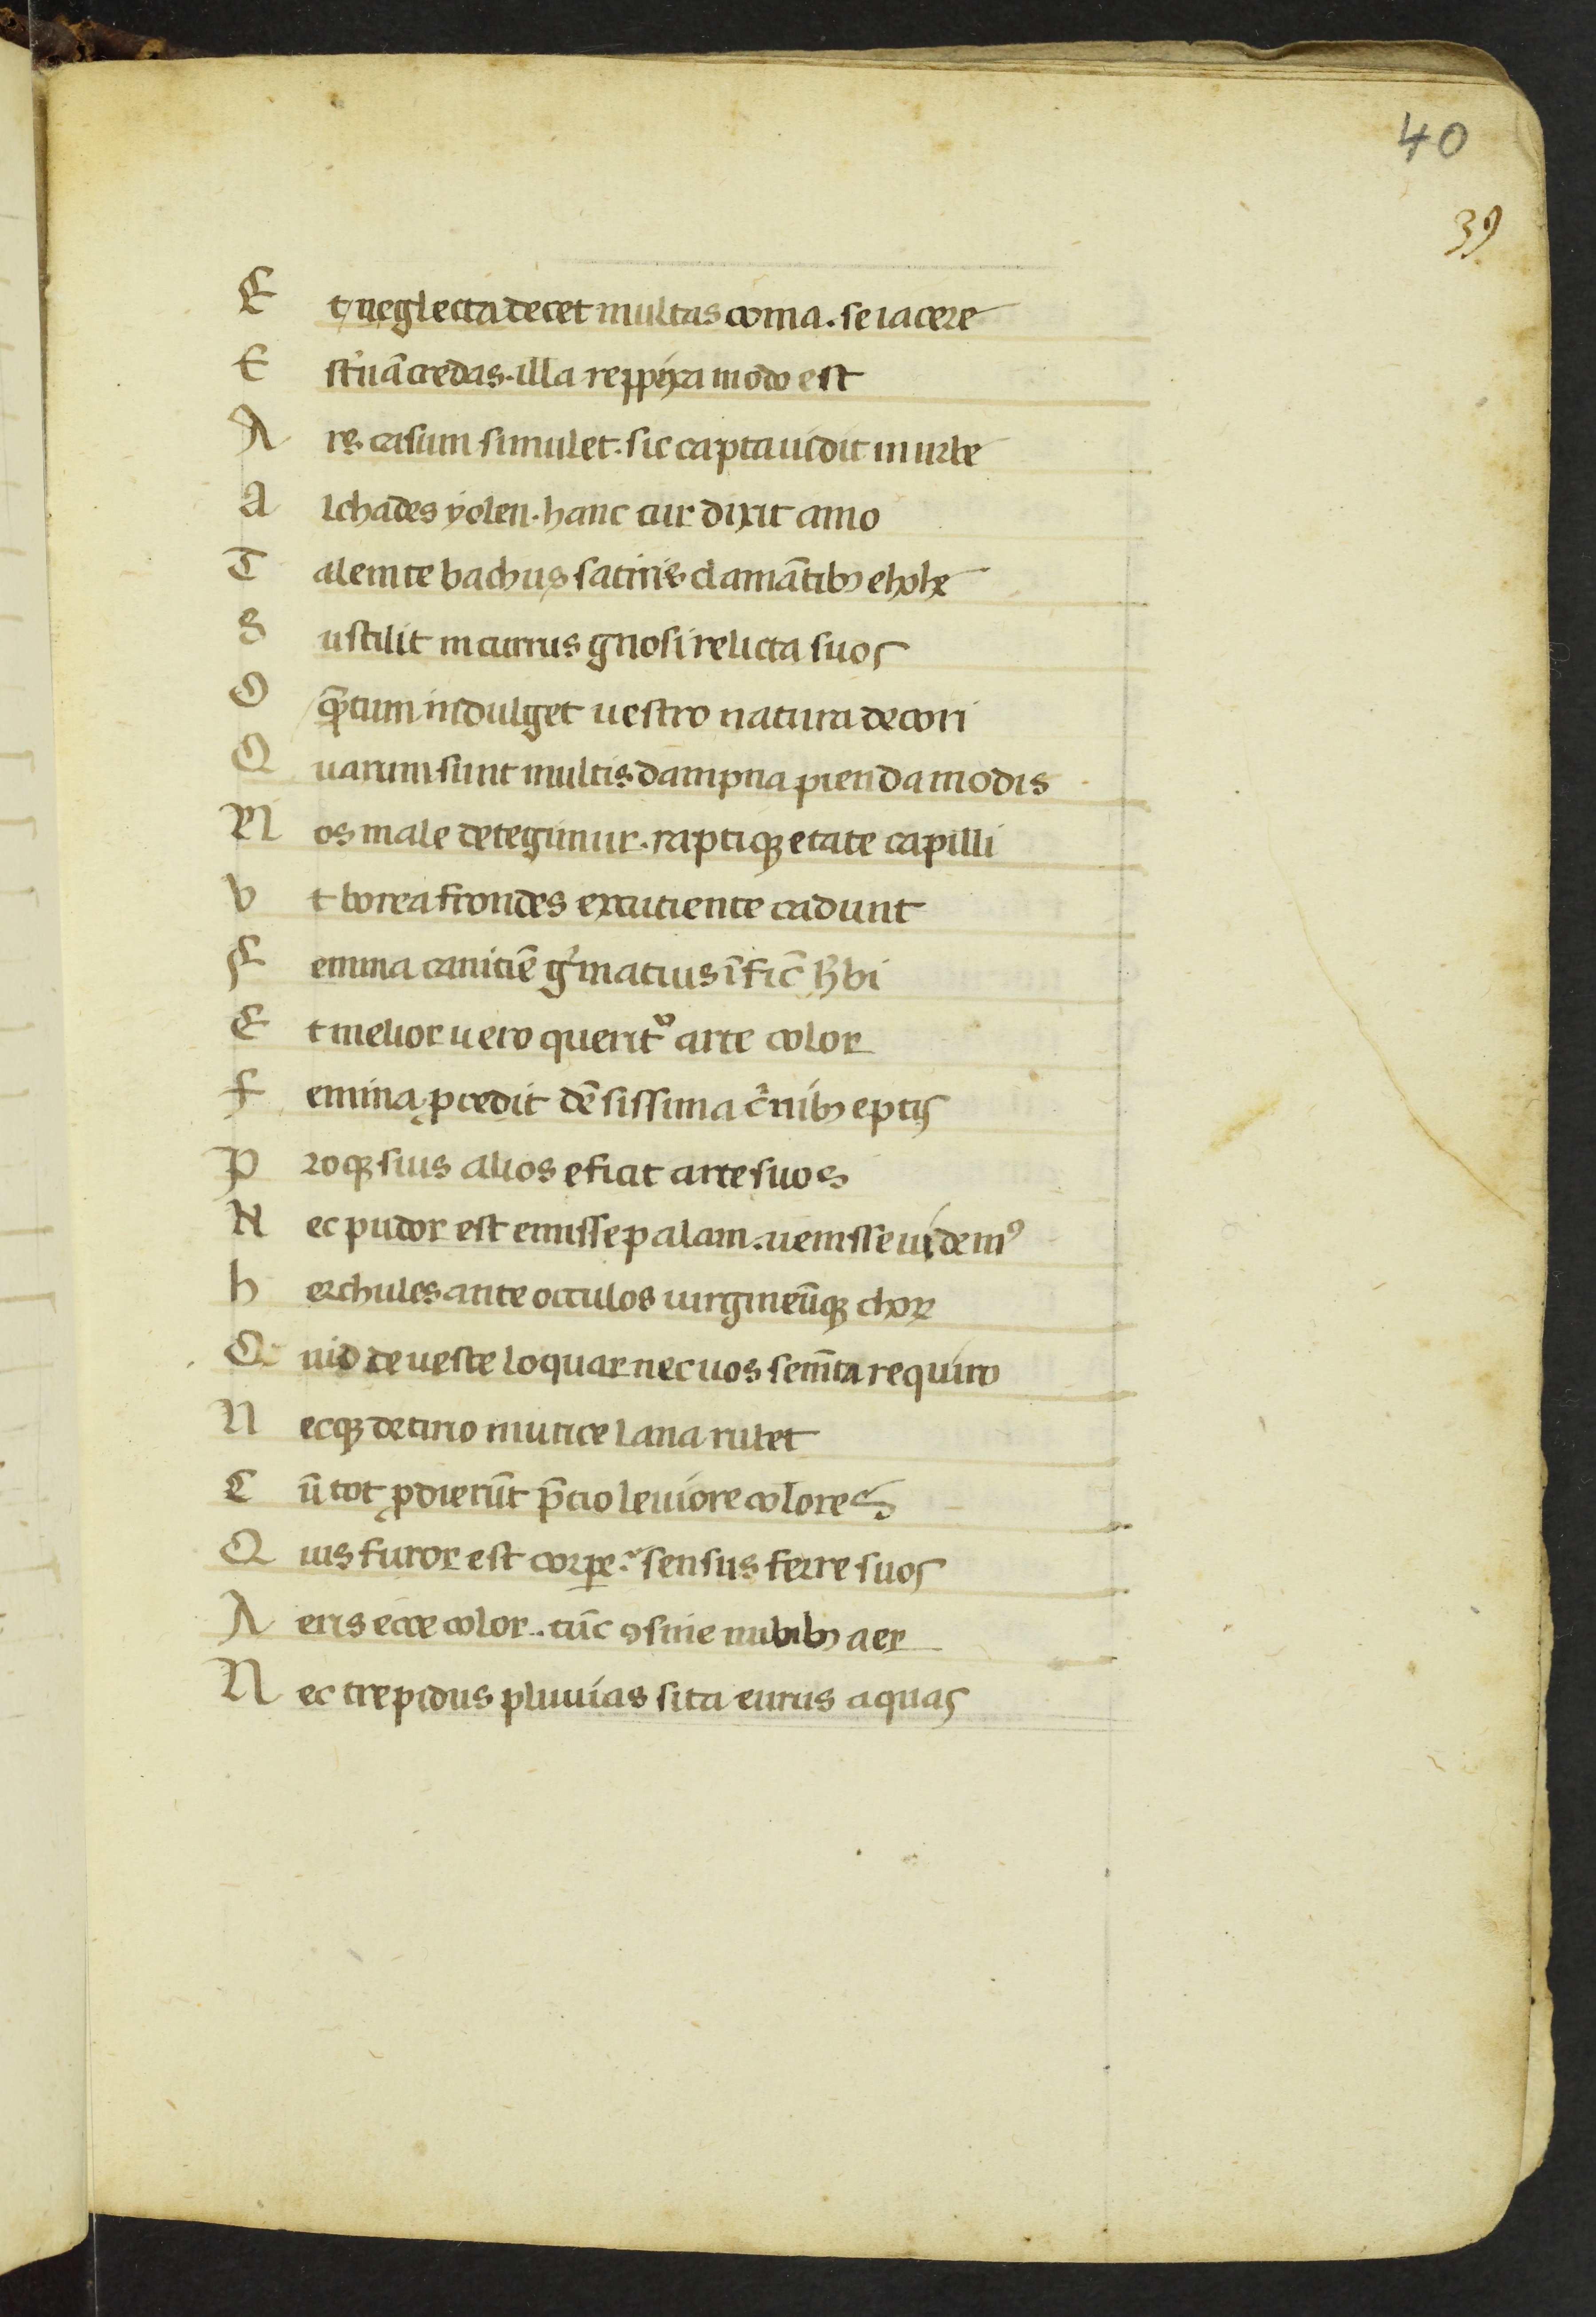 40
39
E t neglecta decet multas coma. se iacere
E st'nā credas. illa reppexa modo est
A rs casum simulet. sic capta uidit in urbe
A lchades yolen. hanc cur dixit amo
T alem te bachus satiris clamātibꝫ ehohe
S ustilit in currus gnosi relicta suos
O q̄ntum indulget uestro natura decori
Q uarum sunt multis dampna pienda modis
N os male detegimur. raptiqꝫ etate capilli
V t borea frondes excutiente cadunt
F emina canitiē g'matius īfic̄ h'bi
E t melior uero querit᷑ arte color
F emina ꝓcedit dēsissima c'nibꝫ eptis
P roqꝫ suis alios eficit arte suos
N ec pudor est emisse palam. uenisse uidemꝰ
h erchules ante occulos uirgineūqꝫ choꝝ
Q uid de ueste loquar nec uos sem̄ta requiro
N ecqꝫ de tirio murice lana rubet
C ū tot ꝓdierūt p̄cio leuiore colores
Q uis furor est corpe. sensus ferre suos
A eris ecce color. tūc ꝯ sine nubibꝫ aer
N ec trepidus pluuias sita eurus aquas